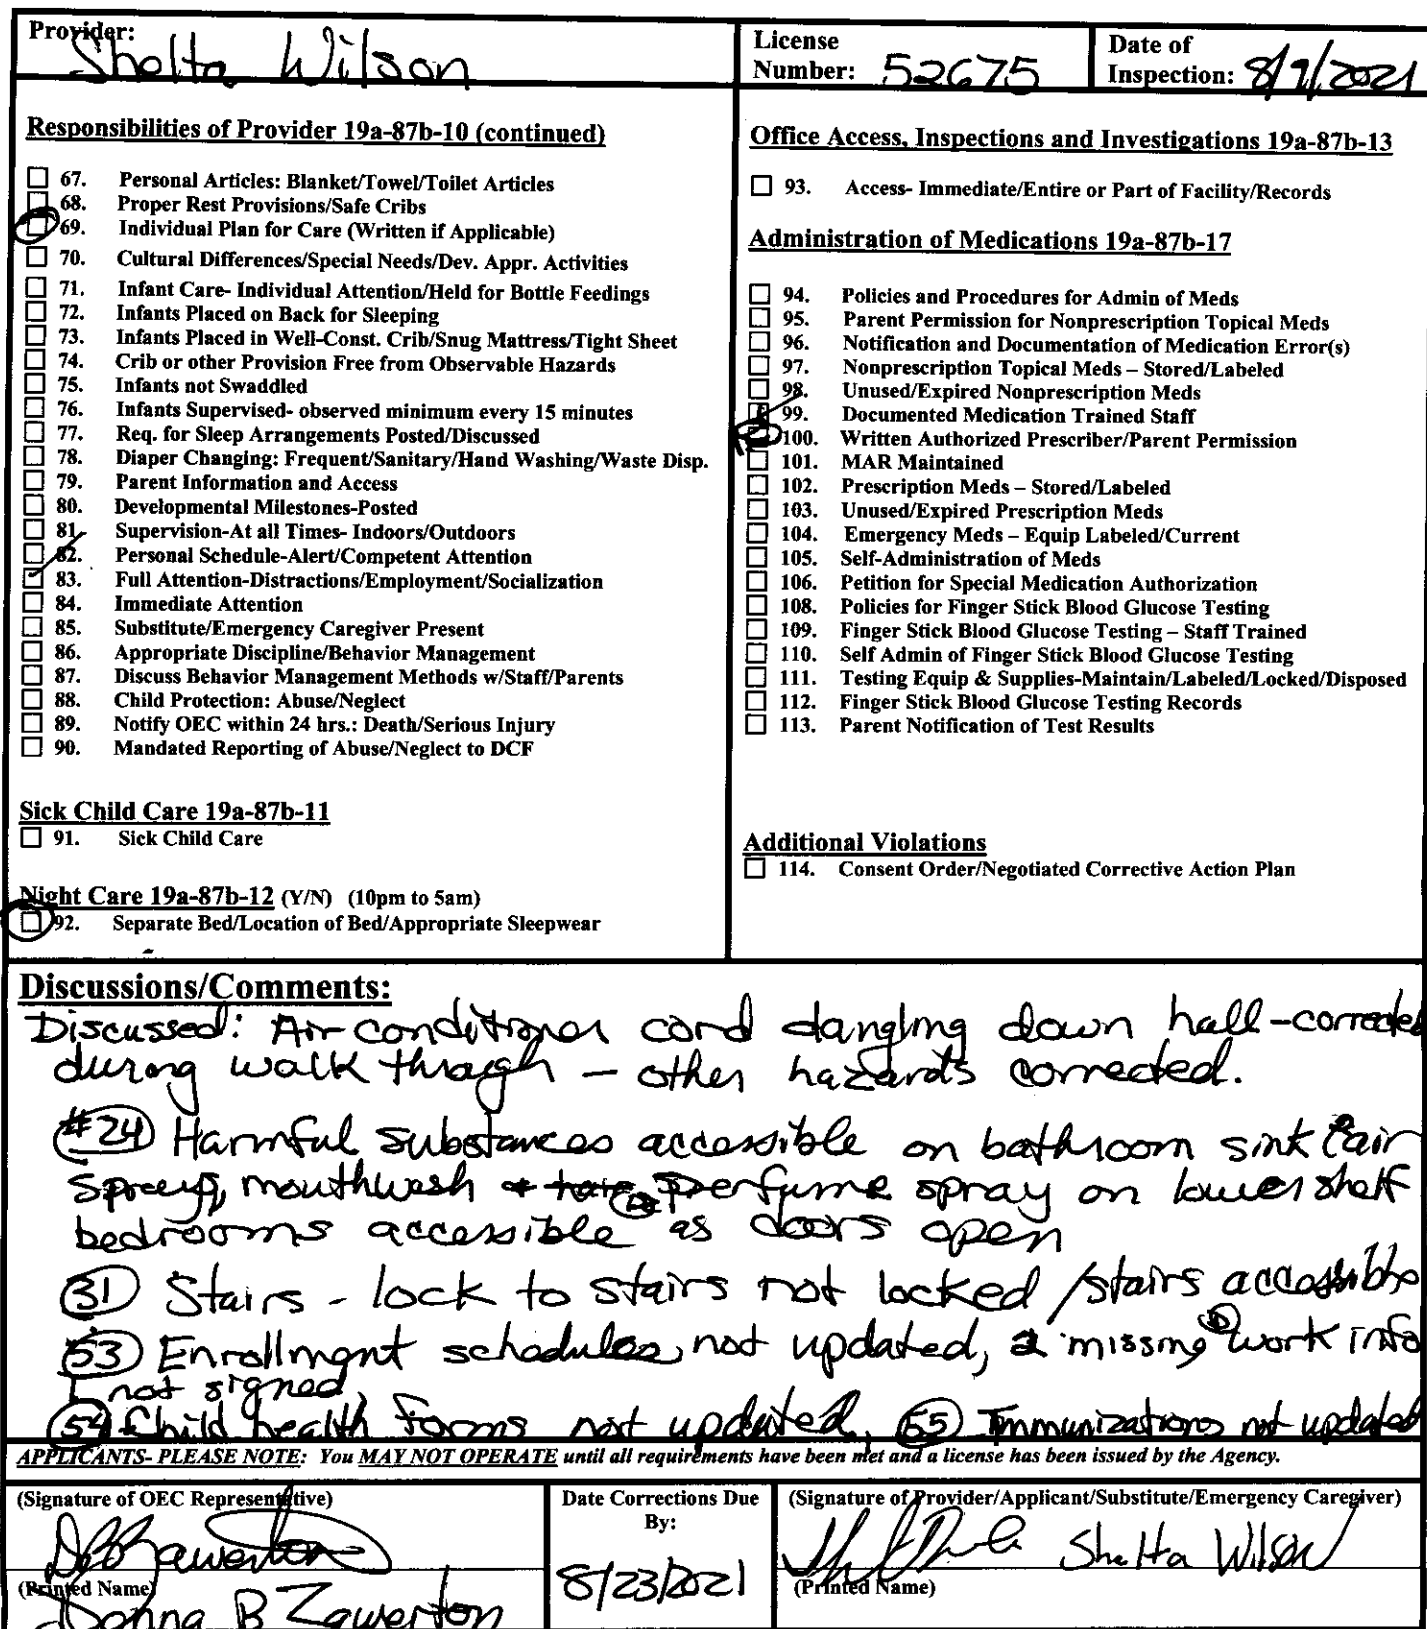 Provider: Shelta Wilson
License Number: 52675
Date of Inspection: 8/9/2021
Responsibilities of Provider 19a-87b-10 (continued)
67. Personal Articles: Blanket/Towel/Toilet Articles
68. Proper Rest Provisions/Safe Cribs
69. Individual Plan for Care (Written if Applicable)
70. Cultural Differences/Special Needs/Dev. Appr. Activities
71. Infant Care- Individual Attention/Held for Bottle Feedings
72. Infants Placed on Back for Sleeping
73. Infants Placed in Well-Const. Crib/Snug Mattress/Tight Sheet
74. Crib or other Provision Free from Observable Hazards
75. Infants not Swaddled
76. Infants Supervised- observed minimum every 15 minutes
77. Req. for Sleep Arrangements Posted/Discussed
78. Diaper Changing: Frequent/Sanitary/Hand Washing/Waste Disp.
79. Parent Information and Access
80. Developmental Milestones-Posted
81. Supervision-At all Times- Indoors/Outdoors
82. Personal Schedule-Alert/Competent Attention
83. Full Attention-Distractions/Employment/Socialization
84. Immediate Attention
85. Substitute/Emergency Caregiver Present
86. Appropriate Discipline/Behavior Management
87. Discuss Behavior Management Methods w/Staff/Parents
88. Child Protection: Abuse/Neglect
89. Notify OEC within 24 hrs.: Death/Serious Injury
90. Mandated Reporting of Abuse/Neglect to DCF
Sick Child Care 19a-87b-11
91. Sick Child Care
Night Care 19a-87b-12 (Y/N) (10pm to 5am)
92. Separate Bed/Location of Bed/Appropriate Sleepwear
Office Access, Inspections and Investigations 19a-87b-13
93. Access- Immediate/Entire or Part of Facility/Records
Administration of Medications 19a-87b-17
94. Policies and Procedures for Admin of Meds
95. Parent Permission for Nonprescription Topical Meds
96. Notification and Documentation of Medication Error(s)
97. Nonprescription Topical Meds – Stored/Labeled
98. Unused/Expired Nonprescription Meds
99. Documented Medication Trained Staff
100. Written Authorized Prescriber/Parent Permission
101. MAR Maintained
102. Prescription Meds – Stored/Labeled
103. Unused/Expired Prescription Meds
104. Emergency Meds – Equip Labeled/Current
105. Self-Administration of Meds
106. Petition for Special Medication Authorization
108. Policies for Finger Stick Blood Glucose Testing
109. Finger Stick Blood Glucose Testing – Staff Trained
110. Self Admin of Finger Stick Blood Glucose Testing
111. Testing Equip & Supplies-Maintain/Labeled/Locked/Disposed
112. Finger Stick Blood Glucose Testing Records
113. Parent Notification of Test Results
Additional Violations
114. Consent Order/Negotiated Corrective Action Plan
Discussions/Comments:
Discussed: Air conditioner cord dangling down hall-corrected
during walk through - other hazards corrected.
#24 Harmful substances accessible on bathroom sink (air
sprays, mouthwash perfume spray on lower shelf
bedrooms accessible as doors open
31 Stairs - lock to stairs not locked/stairs accessible
53 Enrollment schedules not updated, 2 missing work info
1 not signed,
54 Child health forms not updated, 55 Immunizations not updated
APPLICANTS- PLEASE NOTE: You MAY NOT OPERATE until all requirements have been met and a license has been issued by the Agency.
(Signature of OEC Representative)
(Printed Name)
Donna B Zawerton
Date Corrections Due By:
8/23/2021
(Signature of Provider/Applicant/Substitute/Emergency Caregiver)
Shelta Wilson
(Printed Name)